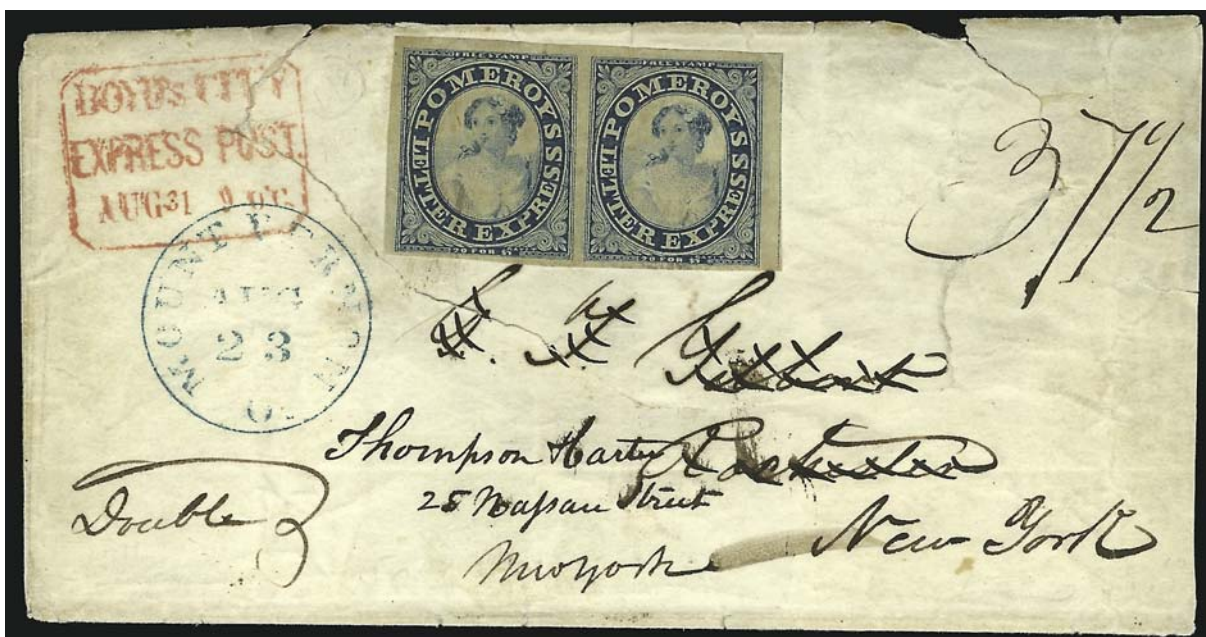 BOYD'S CITY
EXPRESS POST.
AUG 31
FREE STAMP
POMEROY'S
LETTER EXPRESS
20 FOR $1
FREE STAMP
POMEROY'S
LETTER EXPRESS
20 FOR $1
37 1/2
MOUNT VERNON O.
AUG
23
Thompson Harter
28 Nassau Street
New York
Double
Rochester
New York